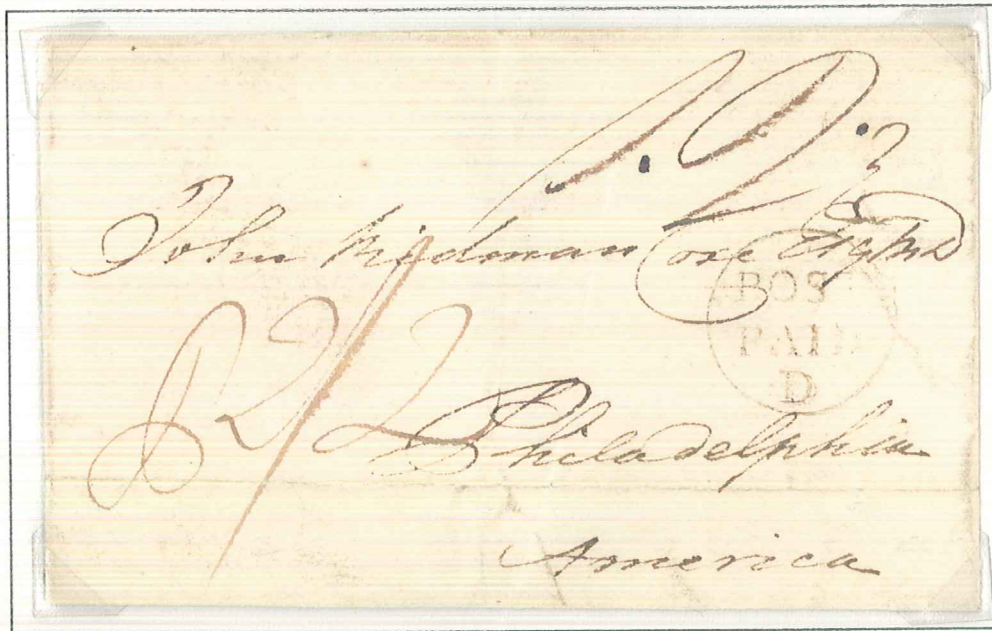 John Redman Coxe Esqre
POST
PAID
D
2/2
Philadelphia
America